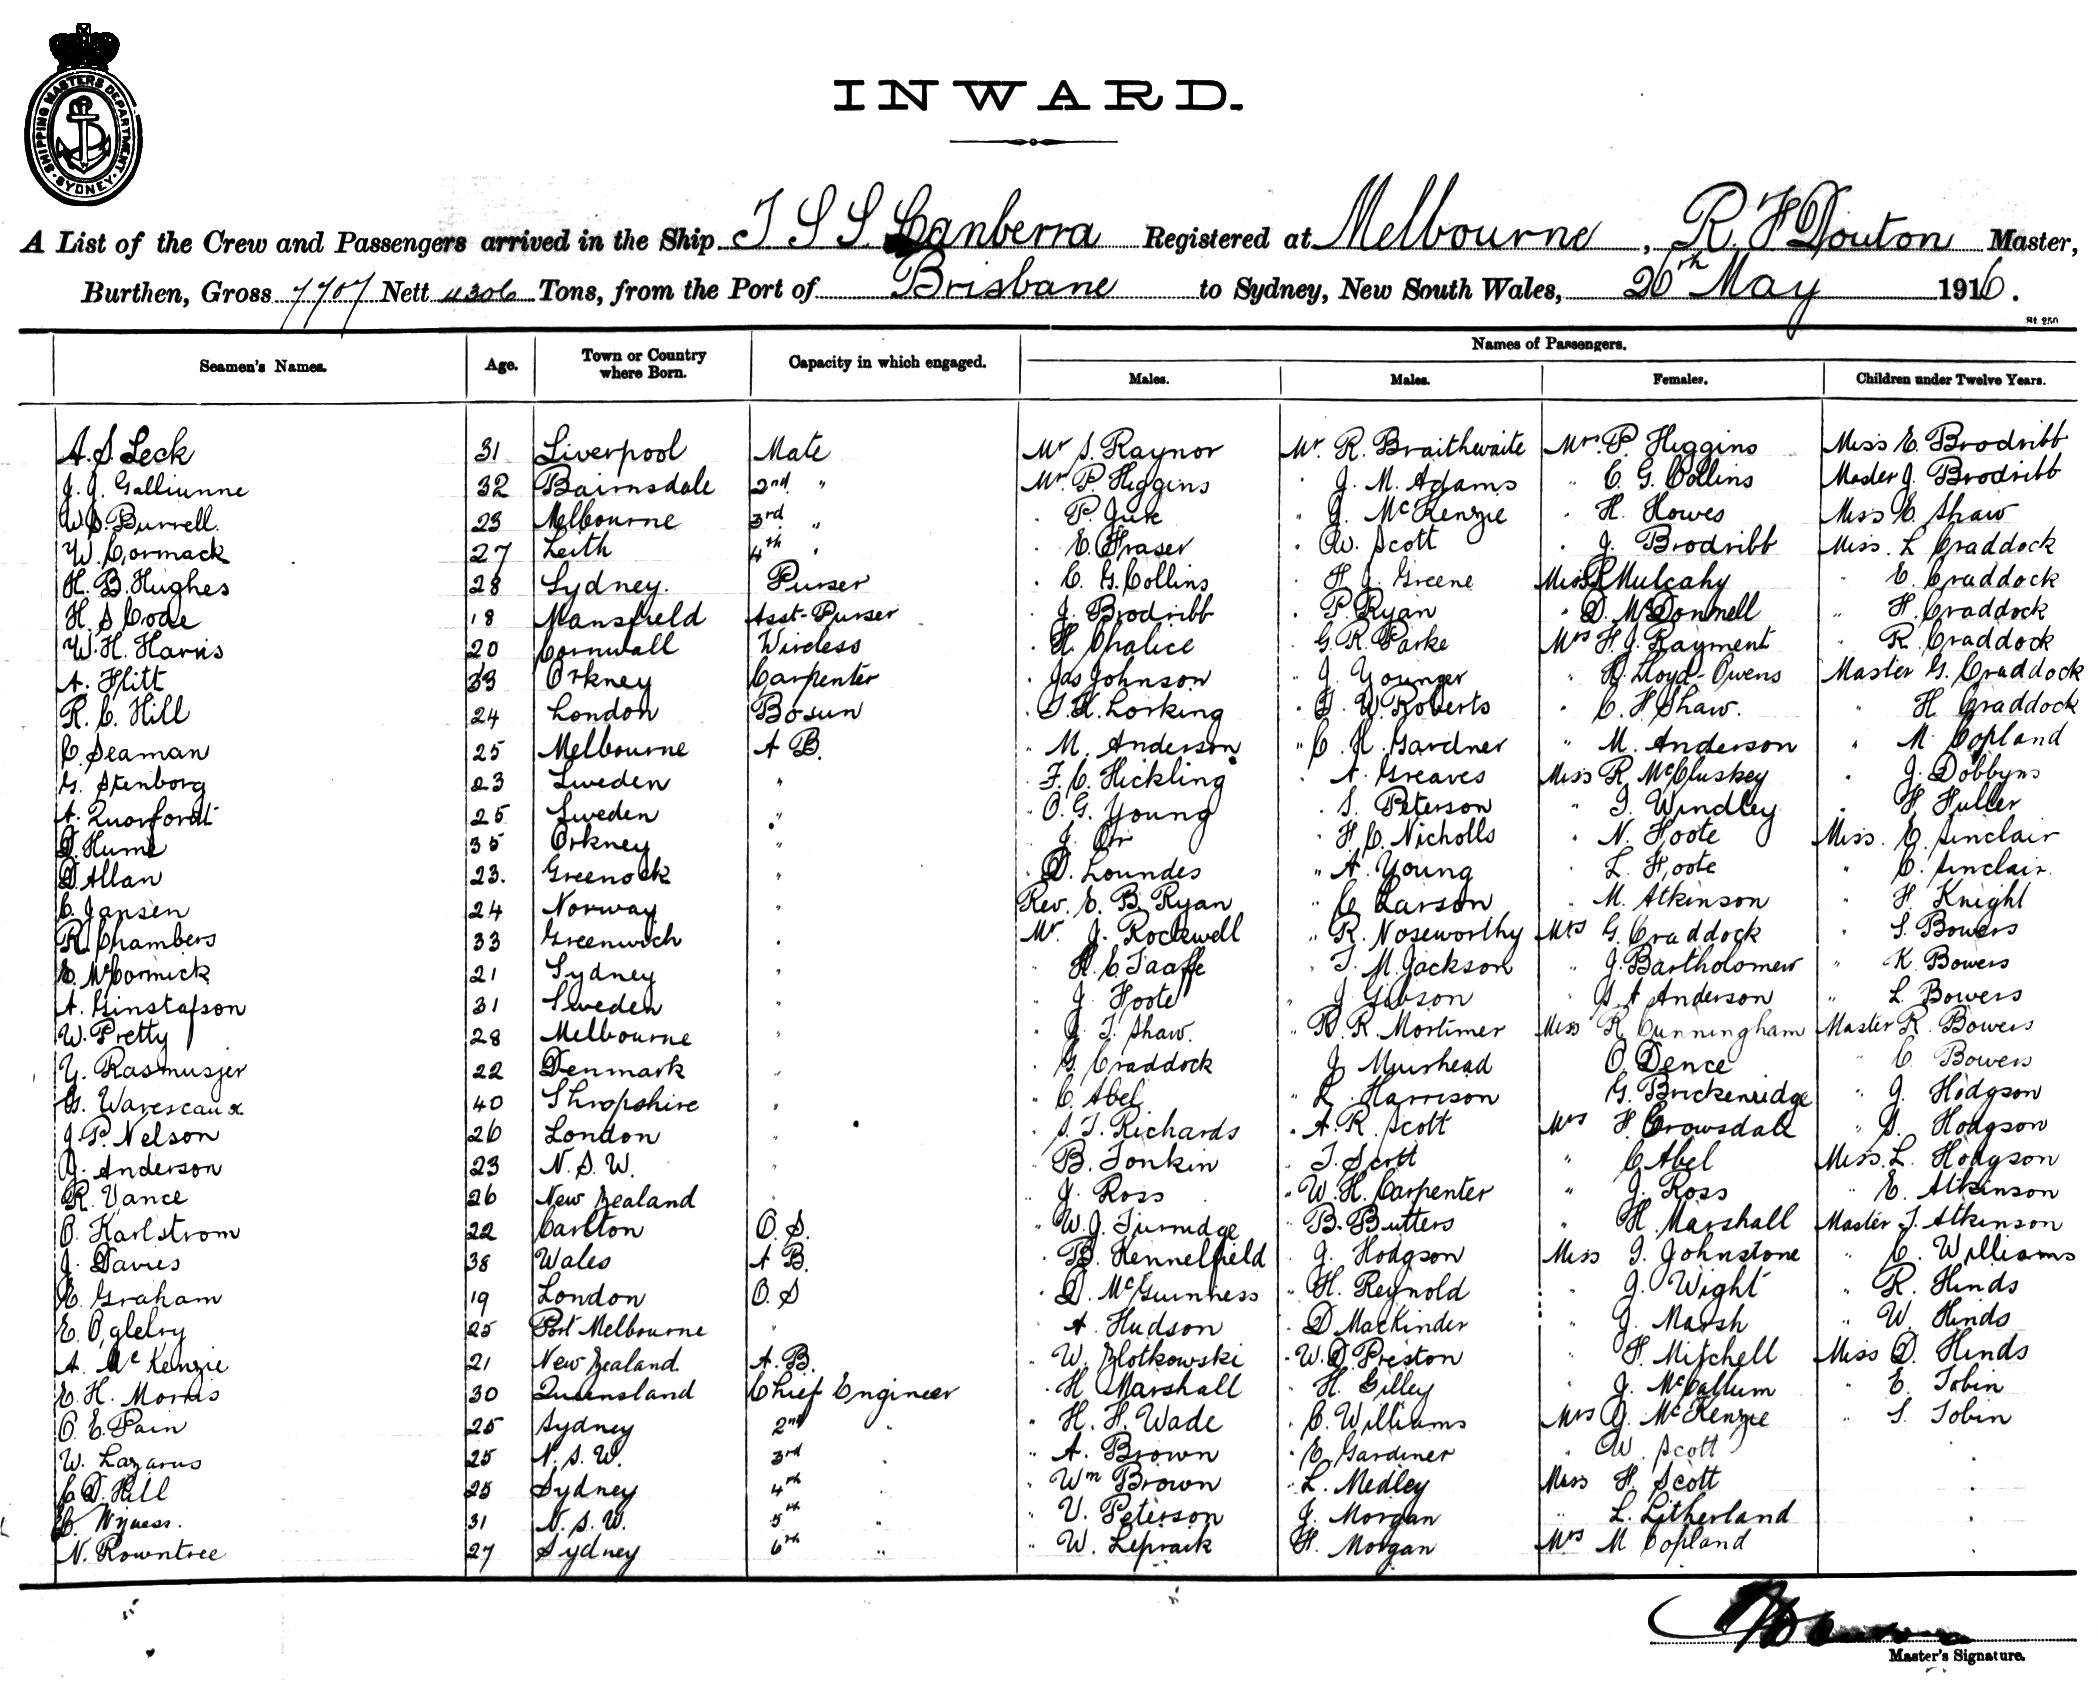 SHIPPING MASTERS DEPARTMENT SYDNEY
INWARD.
A List of the Crew and Passengers arrived in the Ship T S S Canberra Registered at Melbourne, R. F Douton Master,
Burthen, Gross 7707 Nett 4306 Tons, from the Port of Brisbane to Sydney, New South Wales, 26th May 1916.
St. 250
Names of Passengers.
Seamen's Names. Age. Town or Country where Born. Capacity in which engaged. Males. Males. Females. Children under Twelve Years.
A. S. Leck 31 Liverpool Mate Mr S. Raynor Mr. R. Braithwaite Mrs. P. Higgins Miss E. Brodribb
J. J. Galliunne 32 Bairnsdale 2nd " Mr. P. Higgins J. M. Adams " C. G. Collins Master J. Brodribb
W. S. Burrell. 23 Melbourne 3rd " P. Juk " J. McKenzie " H. Howes Miss E. Shaw
W. Cormack 27 Leith 4th " E. Fraser W. Scott J. Brodribb Miss. L Craddock
H. B. Hughes 28 Sydney. Purser C. G. Collins H. J. Greene Miss R Mulcahy E. Craddock
H. S Code 18 Mansfield Asst-Purser J. Brodribb P. Ryan " D. McDonnell " F. Craddock
W. H. Harris 20 Cornwall Wireless H. Chalice G. R. Parke Mrs H. J. Rayment " R. Craddock
A. Flitt 33 Orkney Carpenter Jas Johnson " J. Younger " R. Lloyd-Owens Master G. Craddock
R. C. Hill 24 London Bosun T. H. Lorking T. W. Roberts " C. F Shaw. " H Craddock
C. Seaman 25 Melbourne A B. " M. Anderson " C. H. Gardner " M. Anderson " M. Copland
G. Stenborg 23 Sweden " F. C. Hickling A. Greaves Miss R. McCluskey J. Dobbyns
A. Quorfordt 25 Sweden " O. G. Young S. Peterson " I. Windley F Fuller
D. Hume 35 Orkney " J. Orr F. C. Nicholls " N. Foote Miss. E. Sinclair
D. Allan 23. Greenock " D. Loundes " A. Young L. Foote " C. Sinclair.
C. Jansen 24 Norway " Rev. E. B. Ryan " C Larson M. Atkinson " F. Knight
R. Chambers 33 Greenwich " Mr. J. Rockwell " R. Noseworthy Mrs G. Craddock " S. Bowers
E. McCormick 21 Sydney " H. C. Taaffe " T. M. Jackson " J. Bartholomew " K. Bowers
A. Ginstafson 31 Sweden " J Foote " J Gibson S. A Anderson " L. Bowers
W. Pretty 28 Melbourne " J. T. Shaw. " R. R. Mortimer Miss R. Cunningham Master R. Bowers
Y. Rasmusjer 22 Denmark " G. Craddock J. Muirhead O. Dence " C Bowers
G. Waverscaux 40 Shropshire " C. Abel " L. Harrison G. Brickenridge " J. Hodgson
J. P. Nelson 26 London " S. T. Richards A. R. Scott Mrs F. Crowsdale " S. Hodgson
J. Anderson 23 N. S. W. " B. Tonkin T. Scott " C Abel Miss. L. Hodgson
R. Vance 26 New Zealand " J. Ross W. H. Carpenter " J. Ross " E. Atkinson
O. Karlstrom 22 Carlton O. S. " W. J. Turridge " B. Butters " H. Marshall Master T. Atkinson
J. Davies 38 Wales A B. B. Kennelfield J. Hodgson Miss I. Johnstone " C. Williams
E. Graham 19 London O. S D. McGuinness " H. Reynold " J. Wight " R. Hinds
E. Oglelry 25 Port Melbourne " A. Hudson D Mackinder " J. Marsh " W. Hinds
A. McKenzie 21 New Zealand A. B. " W. Zlotkowski W. D. Preston " F. Mitchell Miss D. Hinds
E. H. Morris 30 Queensland Chief Engineer H. Marshall H. Gilley " J. McCallum " E. Tobin
O. E. Pain 25 Sydney 2nd " " H. F. Wade C. Williams Mrs J. McKenzie " S. Tobin
W. Lazarus 25 N. S. W. 3rd " " A. Brown E. Gardiner " W. Scott
C. D. Hill 25 Sydney 4th " " Wm Brown L. Medley Miss F. Scott
31 N. S. W. 5th " " V. Peterson J. Morgan " L. Litherland
N. Rowntree 27 Sydney 6th " " W. Leprack H. Morgan Mrs M Copland
Master's Signature.